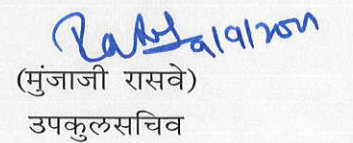 9/9/2011
(मुंजाजी रासवे)
उपकुलसचिव